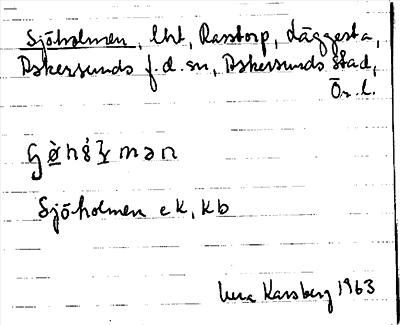 Sjöholmen, lht, Rasstorp, Läggesta,
Askersunds f.d. sn, Askersunds stad,
Ör. l.
Sjöholmen ek, kb
Vera Karsberg 1963